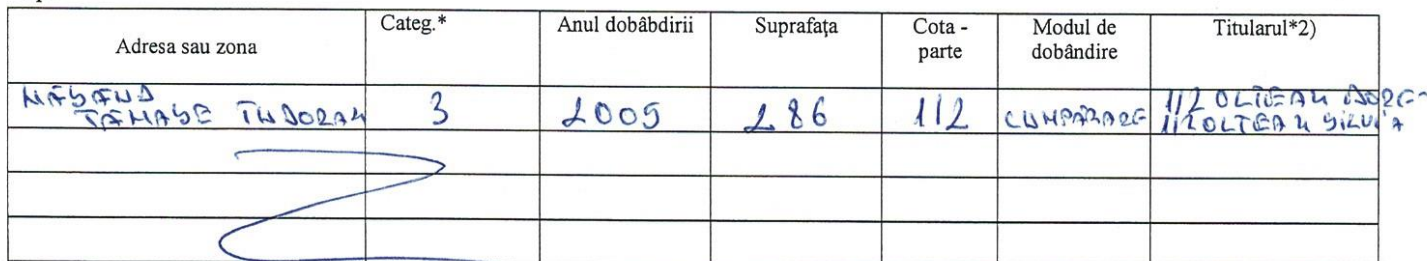 Adresa sau zona Categ.* Anul dobâbdirii Suprafața Cota - parte Modul de dobândire Titularul*2)
TĂMAȘE TUDORAN 3 2005 286 1/2 CUMPĂRARE 1/2 OLTEAN
1/2 OLTEAN SILVIA